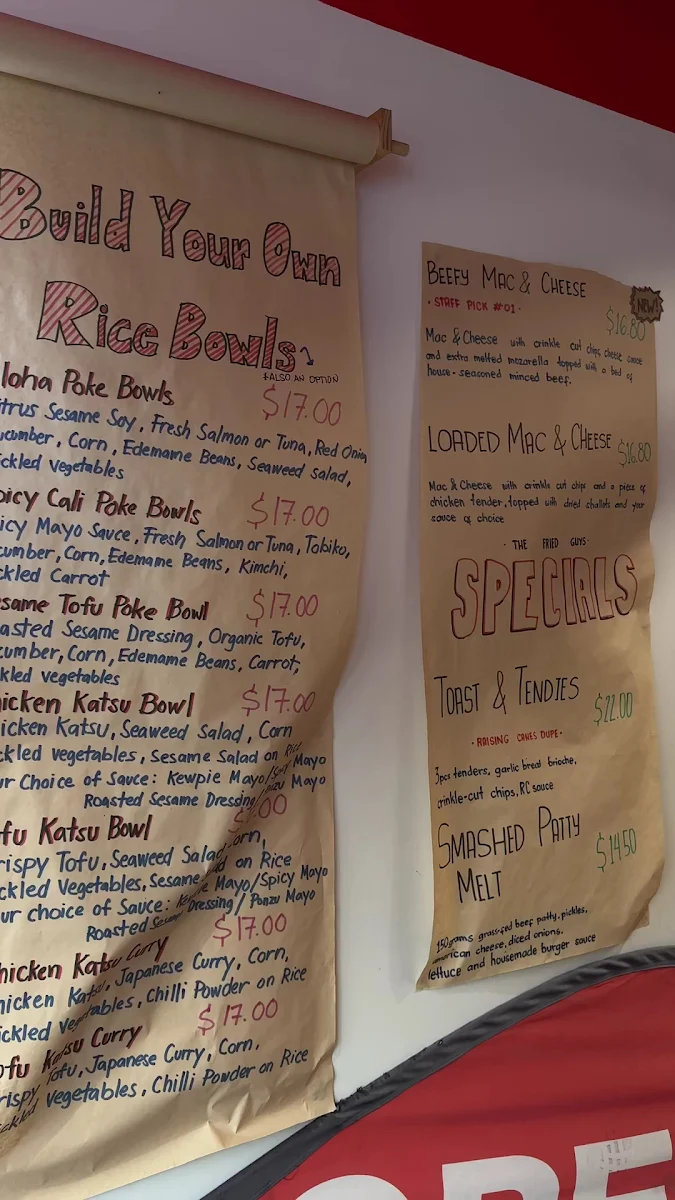 Build Your Own
Rice Bowls
*ALSO AN OPTION
loha Poke Bowls $17.00
itrus Sesame Soy, Fresh Salmon or Tuna, Red Onion
ucumber, Corn, Edemame Beans, Seaweed Salad,
ickled Vegetables
picy Cali Poke Bowls $17.00
icy Mayo Sauce, Fresh Salmon or Tuna, Tobiko,
cumber, Corn, Edemame Beans, Kimchi,
ckled Carrot
esame Tofu Poke Bowl $17.00
asted Sesame Dressing, Organic Tofu,
cumber, Corn, Edemame Beans, Carrot,
kled vegetables
hicken Katsu Bowl $17.00
icken Katsu, Seaweed Salad, Corn
ckled vegetables, Sesame Salad on Rice
ur Choice of Sauce: Kewpie Mayo/Spicy Mayo
Roasted Sesame Dressing/Ponzu Mayo
fu Katsu Bowl
rispy Tofu, Seaweed Salad, Corn,
ckled Vegetables, Sesame Salad on Rice
ur choice of Sauce: Kewpie Mayo/Spicy Mayo
Roasted Sesame Dressing/Ponzu Mayo
hicken Katsu Curry $17.00
hicken Katsu, Japanese Curry, Corn,
ickled Vegetables, Chilli Powder on Rice
ofu Katsu Curry $17.00
rispy Tofu, Japanese Curry, Corn,
ickled Vegetables, Chilli Powder on Rice
BEEFY MAC & CHEESE
NEW!
· STAFF PICK #01 ·
$16.80
Mac & Cheese with crinkle cut chips cheese sauce
and extra melted mozarella topped with a bed of
house-seasoned minced beef.
LOADED MAC & CHEESE $16.80
Mac & Cheese with crinkle cut chips and a piece of
chicken tender, topped with dried challots and your
sauce of choice
· THE FRIED GUYS ·
SPECIALS
TOAST & TENDIES $22.00
· RAISING CANES DUPE ·
3pcs tenders, garlic bread brioche,
crinkle-cut chips, RC sauce
SMASHED PATTY
MELT $14.50
150grams grass-fed beef patty, pickles,
american cheese, diced onions,
lettuce and housemade burger sauce